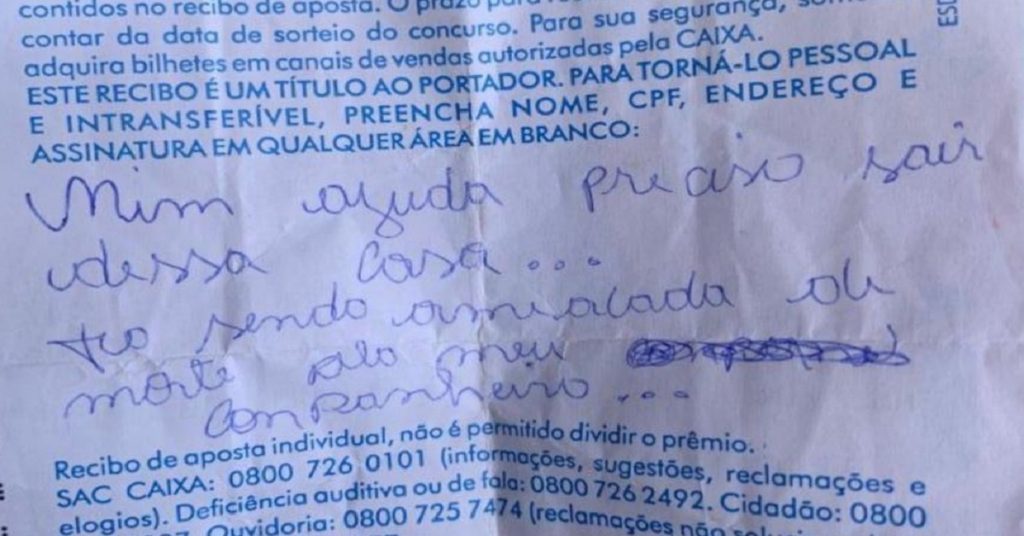 contidos no recibo de aposta. O prazo para
contar da data de sorteio do concurso. Para sua segurança,
adquira bilhetes em canais de vendas autorizadas pela CAIXA.
ESTE RECIBO É UM TÍTULO AO PORTADOR. PARA TORNÁ-LO PESSOAL
E INTRANSFERÍVEL, PREENCHA NOME, CPF, ENDEREÇO E
ASSINATURA EM QUALQUER ÁREA EM BRANCO:
Mim ajuda preciso sair
dessa casa...
tro sendo amiacada de
morte pelo meu
companheiro...
Recibo de aposta individual, não é permitido dividir o prêmio.
SAC CAIXA: 0800 726 0101 (informações, sugestões, reclamações e
elogios). Deficiência auditiva ou de fala: 0800 726 2492. Cidadão: 0800
Ouvidoria: 0800 725 7474 (reclamações não